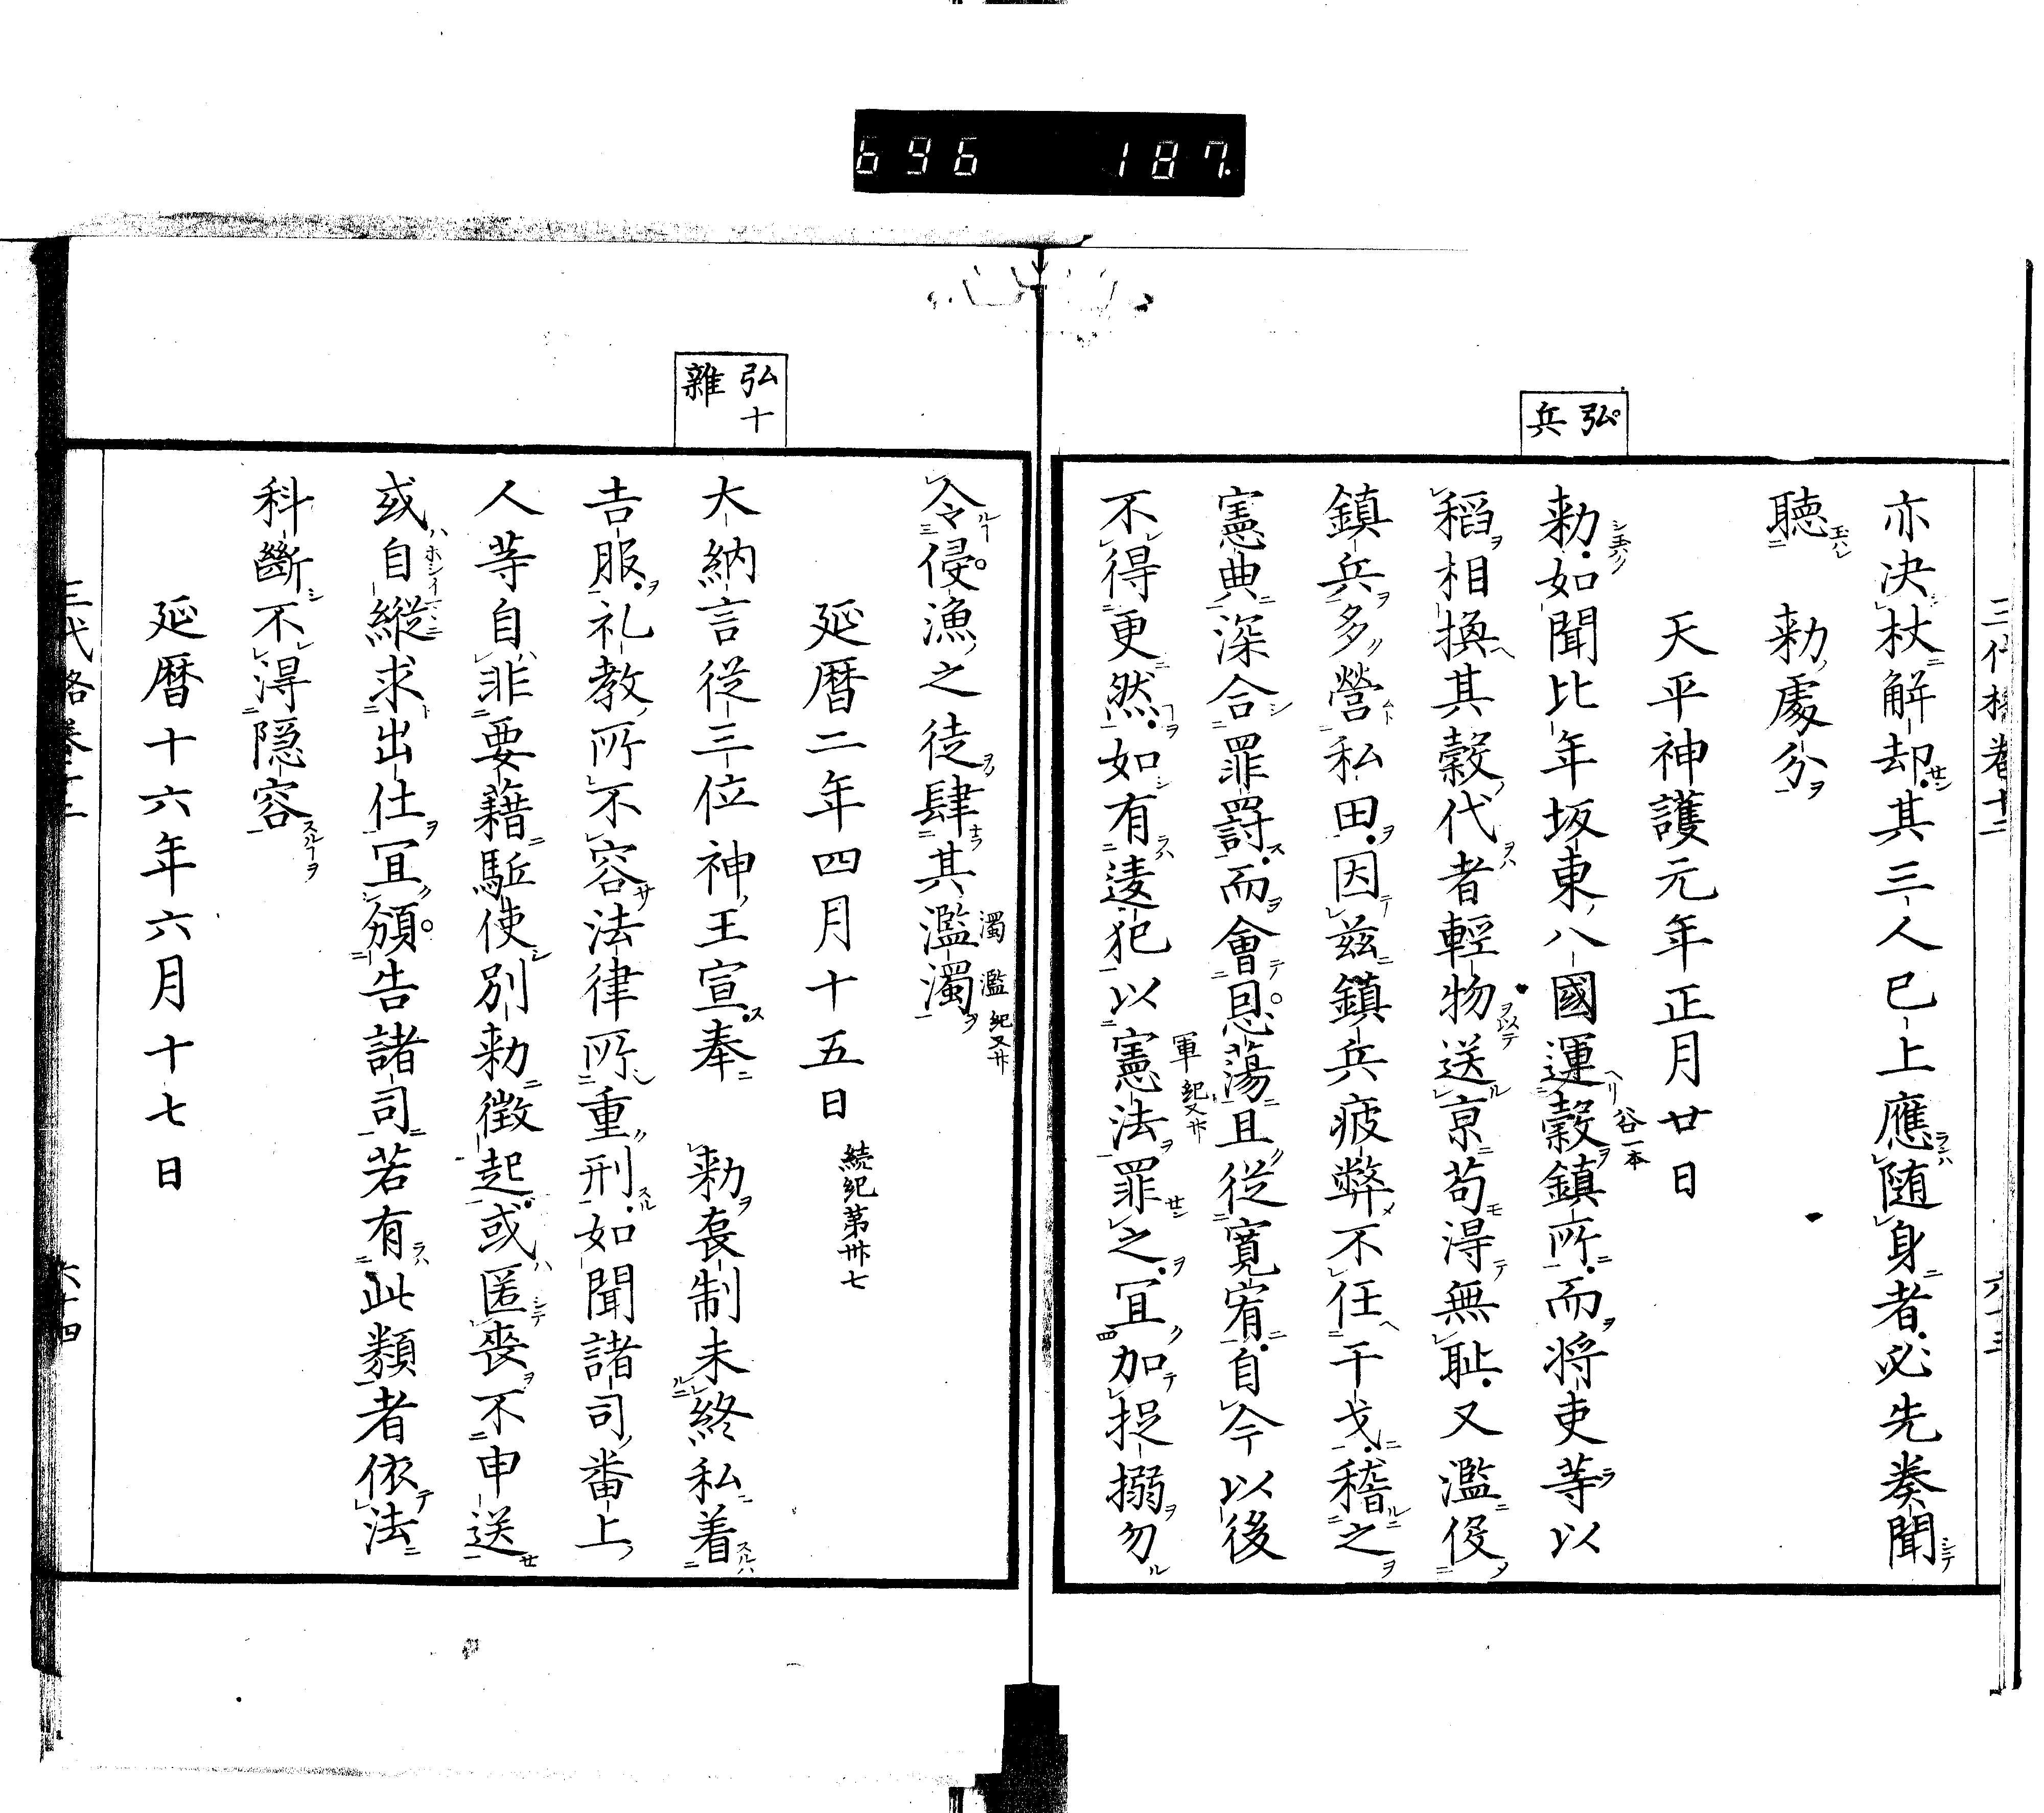 696 187
三代格卷十二
六十三
亦决杖解却其三人已上應随身者必先奏聞
聽勅處分
天平神護元年正月廿日
弘兵
勅如聞比年坂東八國運穀鎮所而将吏等以
谷一本
稻相換其穀代者輕物送京苟得無耻又濫役
鎮兵多營私田因兹鎮兵疲弊不任干戈稽之
憲典深合罪罸而會恩蕩且従寛宥自今以後
軍紀又卅
不得更然如有逺犯以憲法罪之冝加捉搦勿
令侵漁之徒肆其濫濁
濁濫紀又卅
延暦二年四月十五日 続紀第卅七
弘十雜
大納言従三位神王宣奉 勅喪制未終私着
吉服礼教所不容法律所重刑如聞諸司番上
人等自非要藉駈使別勅徴起或匿喪不申送
或自縱求出仕冝頒告諸司若有此類者依法
科斷不得隠容
延暦十六年六月十七日
三代格卷十二
六十四